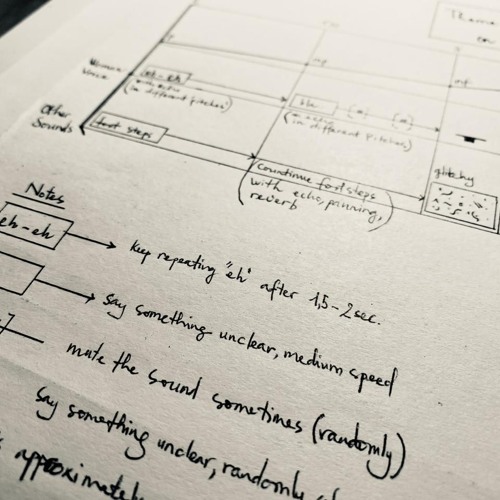 eh-eh
(in different pitches)
in different pitches)
Other
Sounds
foot steps
countinue footsteps
with echo, panning,
reverb
glitchy
Notes
eh-eh
keep repeating "eh" after 1,5-2sec.
say something unclear, medium speed
mute the sound sometimes (randomly)
say something unclear, randomly
approximately